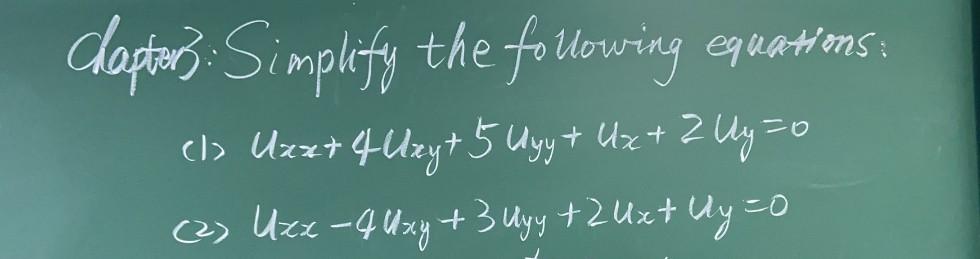 Chapter3: Simplify the following equations:
(1) Uxx+4Uxy+5Uyy+Ux+2Uy=0
(2) Uxx-4Uxy+3Uyy+2Ux+Uy=0